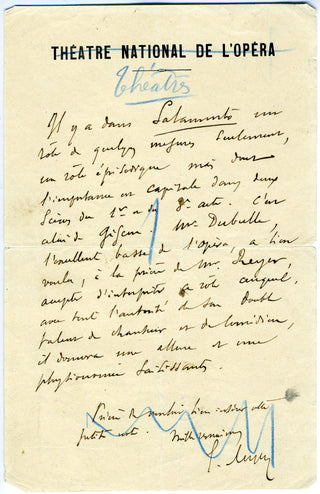 THÉATRE NATIONAL DE L'OPÉRA
Théâtres
Il y a dans Salammbô un
rôle de quelques mesures seulement,
un rôle épisodique mais dont
l'importance est capitale dans deux
scènes du 1er et du 3e acte. C'est
celui de Giscon. Mr. Dubulle,
l'excellent basse de l'opéra, a bien
voulu, à la prière de Mr. Reyer,
accepter d'interpréter ce rôle auquel,
avec toute l'autorité de son double
talent de chanteur et de comédien,
il donnera une allure et une
physionomie saisissantes.
Prière de vouloir bien insérer cette
petite note. Mille remerciements
E. Reyer